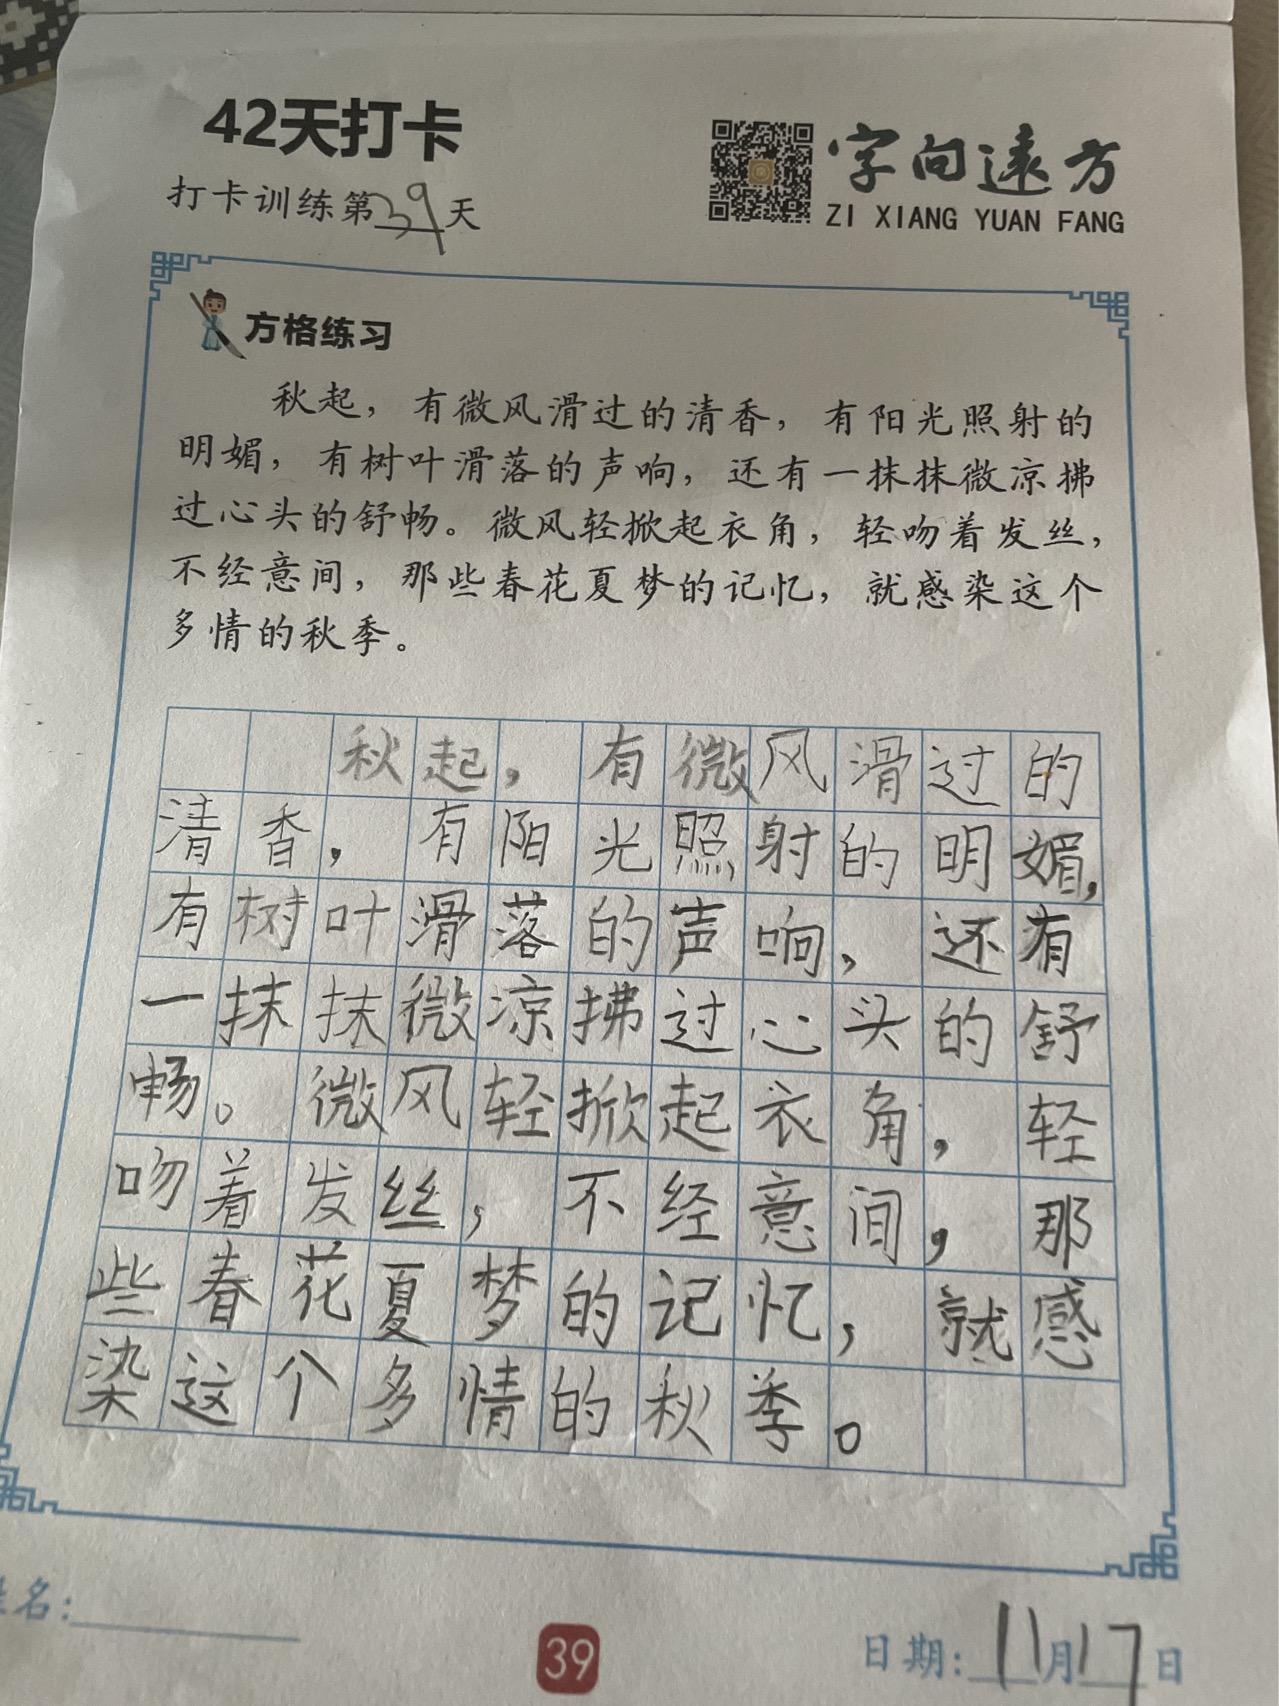 42天打卡
打卡训练第39天
字向遠方
ZI XIANG YUAN FANG
方格练习
秋起，有微风滑过的清香，有阳光照射的
明媚，有树叶滑落的声响，还有一抹抹微凉拂
过心头的舒畅。微风轻掀起衣角，轻吻着发丝，
不经意间，那些春花夏梦的记忆，就感染这个
多情的秋季。
秋起，有微风滑过的
清香，有阳光照射的明媚，
有树叶滑落的声响，还有
一抹抹微凉拂过心头的舒
畅。微风轻掀起衣角，轻
吻着发丝，不经意间，那
些春花夏梦的记忆，就感
染这个多情的秋季。
姓名：
39
日期：11月17日